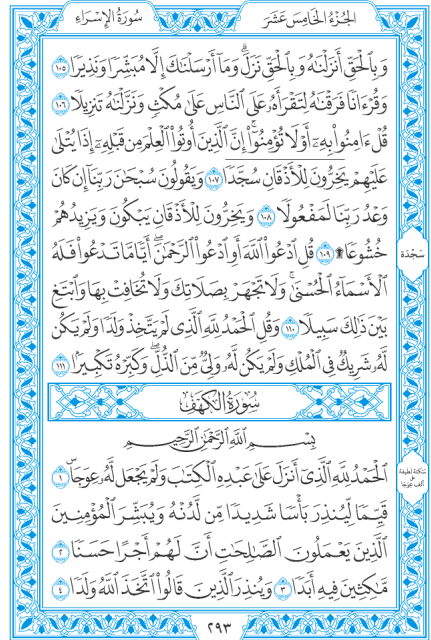 سُورَةُ الإِسْرَاءِ
الجُزْءُ الخَامِسَ عَشَرَ
وَبِالْحَقِّ أَنزَلْنَٰهُ وَبِالْحَقِّ نَزَلَ ۗ وَمَآ أَرْسَلْنَٰكَ إِلَّا مُبَشِّرًا وَنَذِيرًا ١٠٥
وَقُرْءَانًا فَرَقْنَٰهُ لِتَقْرَأَهُۥ عَلَى النَّاسِ عَلَىٰ مُكْثٍ وَنَزَّلْنَٰهُ تَنزِيلًا ١٠٦
قُلْ ءَامِنُوا۟ بِهِۦٓ أَوْ لَا تُؤْمِنُوٓا۟ ۚ إِنَّ الَّذِينَ أُوتُوا۟ الْعِلْمَ مِن قَبْلِهِۦٓ إِذَا يُتْلَىٰ
عَلَيْهِمْ يَخِرُّونَ لِلْأَذْقَانِ سُجَّدًا ١٠٧ وَيَقُولُونَ سُبْحَٰنَ رَبِّنَآ إِن كَانَ
وَعْدُ رَبِّنَا لَمَفْعُولًا ١٠٨ وَيَخِرُّونَ لِلْأَذْقَانِ يَبْكُونَ وَيَزِيدُهُمْ
خُشُوعًا ۩ ١٠٩ قُلِ ادْعُوا۟ اللَّهَ أَوِ ادْعُوا۟ الرَّحْمَٰنَ ۖ أَيًّا مَّا تَدْعُوا۟ فَلَهُ
الْأَسْمَآءُ الْحُسْنَىٰ ۚ وَلَا تَجْهَرْ بِصَلَاتِكَ وَلَا تُخَافِتْ بِهَا وَابْتَغِ
بَيْنَ ذَٰلِكَ سَبِيلًا ١١٠ وَقُلِ الْحَمْدُ لِلَّهِ الَّذِى لَمْ يَتَّخِذْ وَلَدًا وَلَمْ يَكُن
لَّهُۥ شَرِيكٌ فِى الْمُلْكِ وَلَمْ يَكُن لَّهُۥ وَلِىٌّ مِّنَ الذُّلِّ ۖ وَكَبِّرْهُ تَكْبِيرًۢا ١١١
سُورَةُ الكَهْفِ
بِسْمِ اللَّهِ الرَّحْمَٰنِ الرَّحِيمِ
الْحَمْدُ لِلَّهِ الَّذِىٓ أَنزَلَ عَلَىٰ عَبْدِهِ الْكِتَٰبَ وَلَمْ يَجْعَل لَّهُۥ عِوَجَا ۜ ١
قَيِّمًا لِّيُنذِرَ بَأْسًا شَدِيدًا مِّن لَّدُنْهُ وَيُبَشِّرَ الْمُؤْمِنِينَ
الَّذِينَ يَعْمَلُونَ الصَّٰلِحَٰتِ أَنَّ لَهُمْ أَجْرًا حَسَنًا ٢
مَّٰكِثِينَ فِيهِ أَبَدًا ٣ وَيُنذِرَ الَّذِينَ قَالُوا۟ اتَّخَذَ اللَّهُ وَلَدًا ٤
سَجْدَة
سكتة لطيفة
على
ألف عِوَجَا
٢٩٣